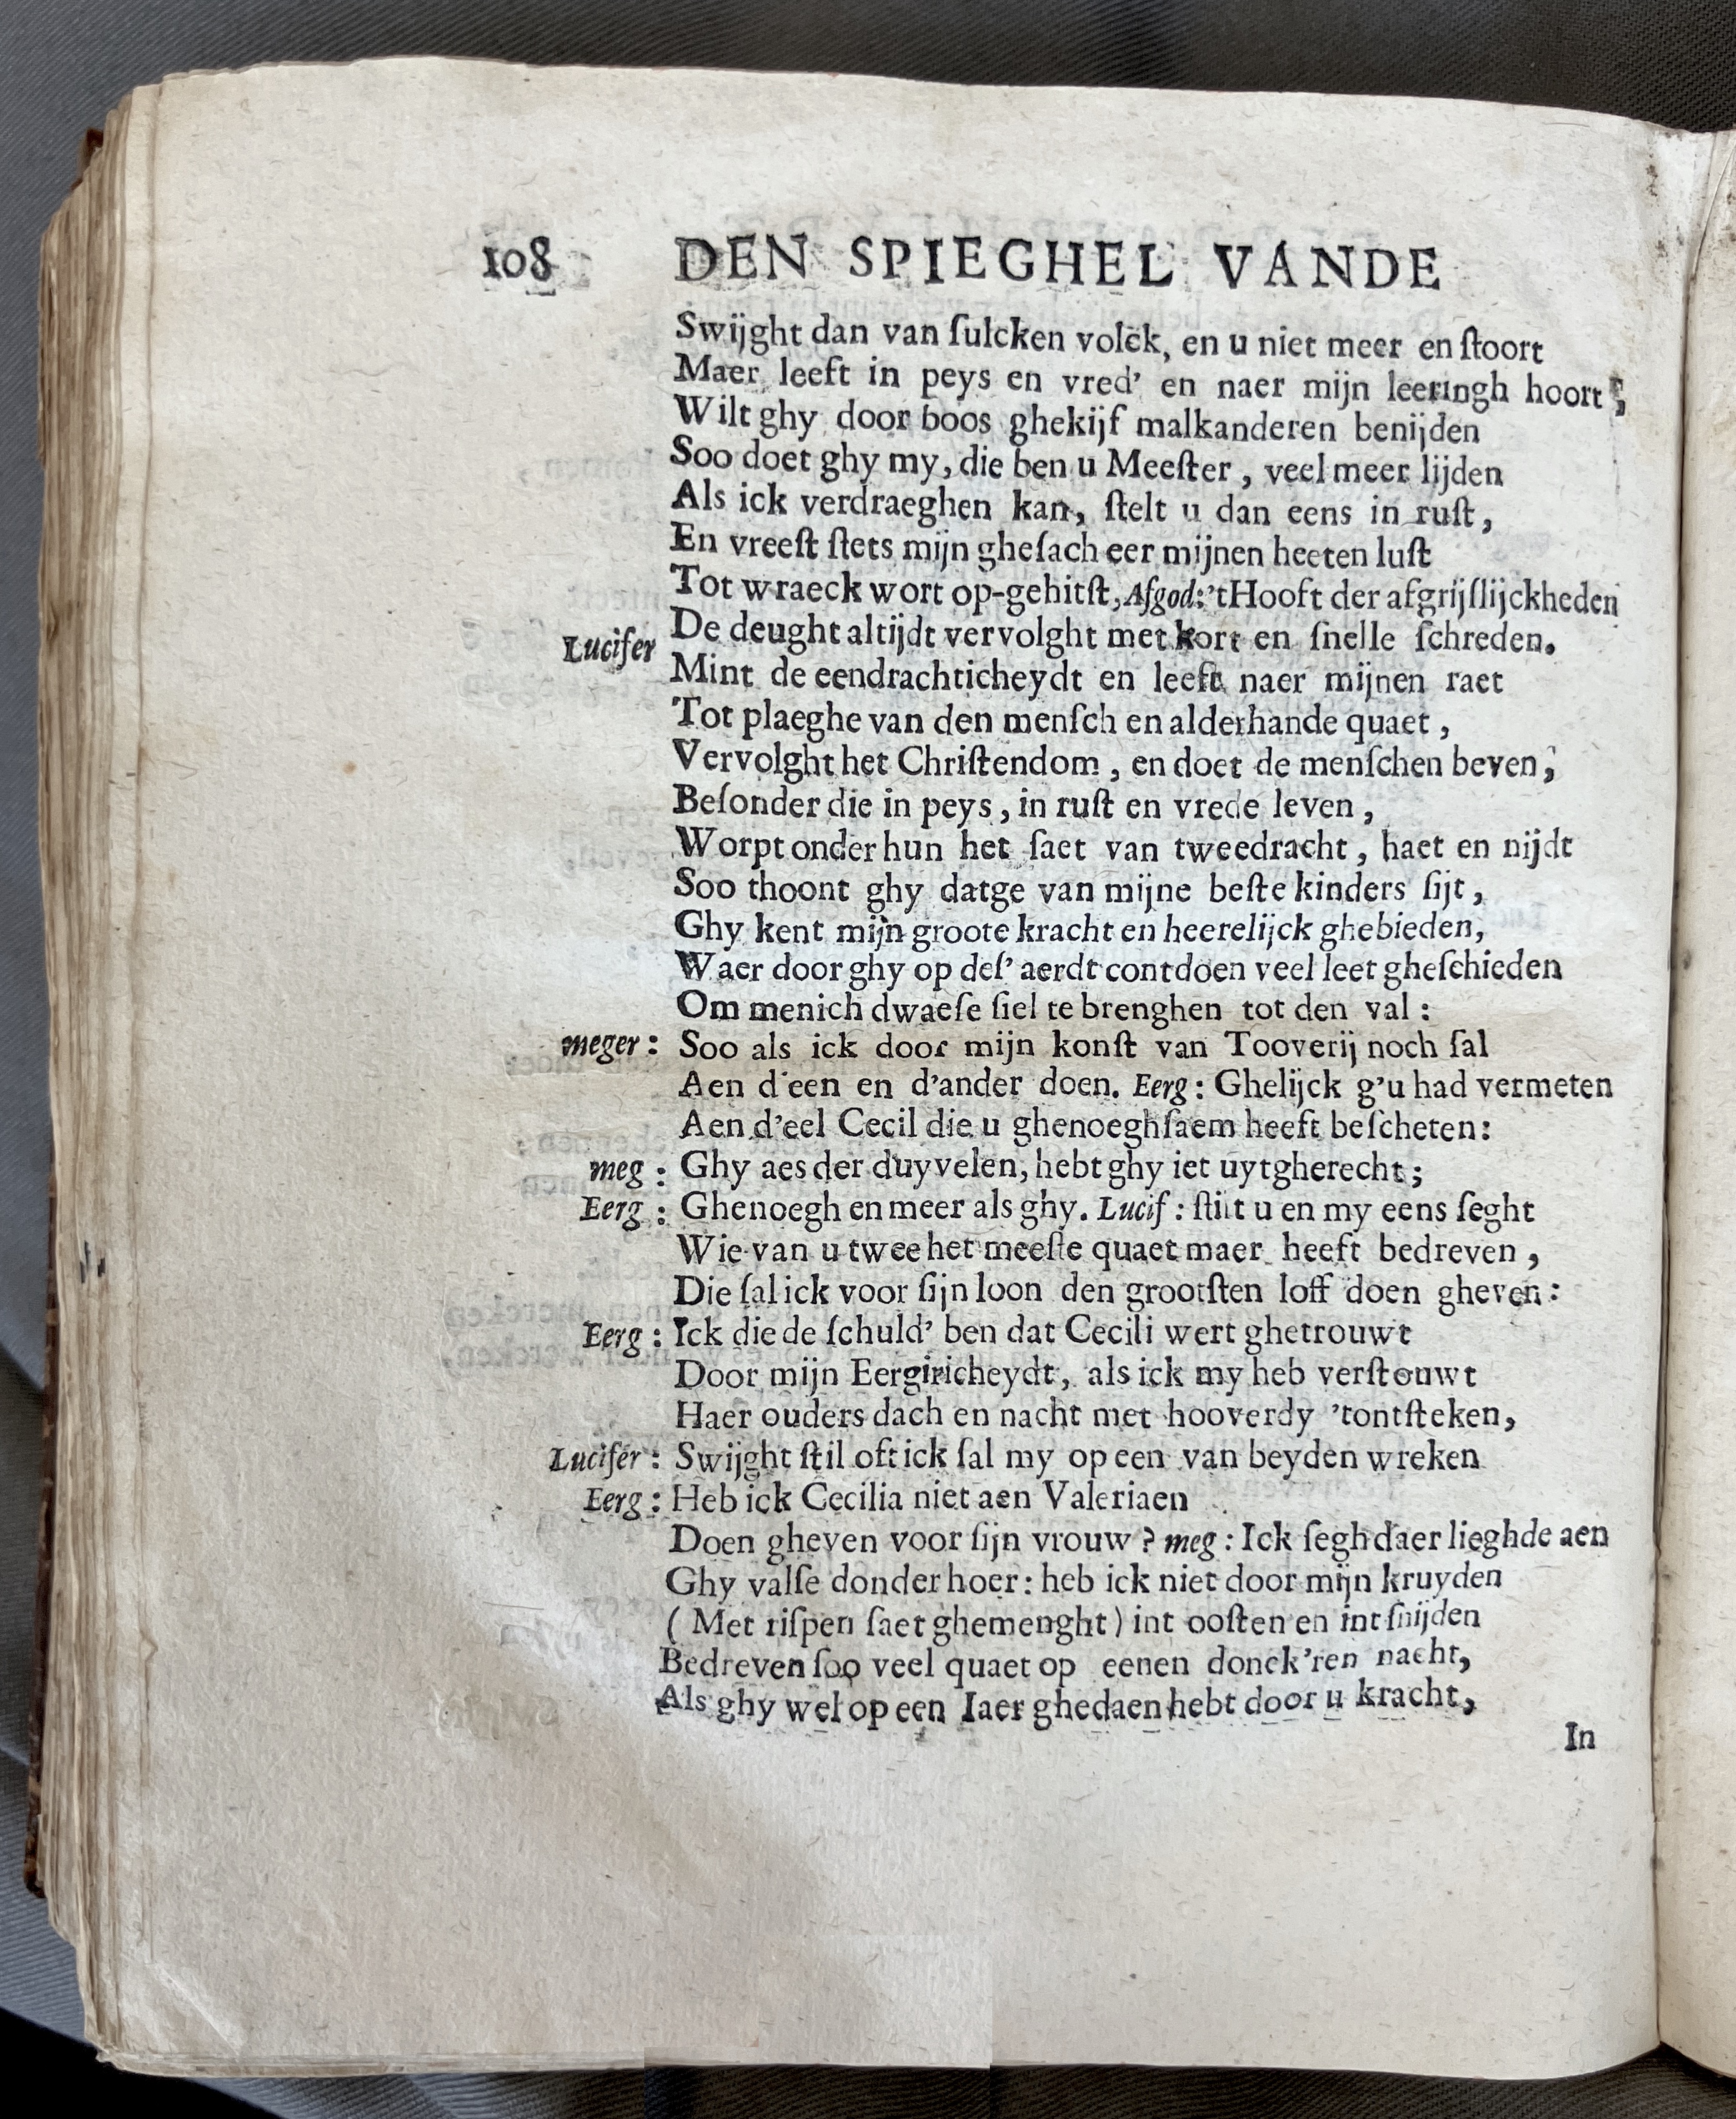 108 DEN SPIEGHEL VANDE
Swijght dan van ſulcken volck, en u niet meer en ſtoort
Maer leeft in peys en vred' en naer mijn leeringh hoort;
Wilt ghy door boos ghekijf malkanderen benijden
Soo doet ghy my, die ben u Meeſter, veel meer lijden
Als ick verdraeghen kan, ſtelt u dan eens in ruſt,
En vreeſt ſtets mijn gheſach eer mijnen heeten luſt
Tot wraeck wort op-gehitſt, Afgod: 'tHooft der afgrijſlijckheden
De deught altijdt vervolght met kort en ſnelle ſchreden.
Lucifer Mint de eendrachticheydt en leeft naer mijnen raet
Tot plaeghe van den menſch en alderhande quaet,
Vervolght het Chriſtendom, en doet de menſchen beven;
Beſonder die in peys, in ruſt en vrede leven,
Worpt onder hun het ſaet van tweedracht, haet en nijdt
Soo thoont ghy datge van mijne beſte kinders ſijt,
Ghy kent mijn groote kracht en heerelijck ghebieden,
Waer door ghy op deſ' aerdt cont doen veel leet gheſchieden
Om menich dwaeſe ſiel te brenghen tot den val:
meger: Soo als ick door mijn konſt van Tooverij noch ſal
Aen d'een en d'ander doen. Eerg: Ghelijck g'u had vermeten
Aen d'eel Cecil die u ghenoeghſaem heeft beſcheten:
meg: Ghy aes der duyvelen, hebt ghy iet uytgherecht;
Eerg: Ghenoegh en meer als ghy. Lucif: ſtilt u en my eens ſeght
Wie van u twee het meeſte quaet maer heeft bedreven,
Die ſal ick voor ſijn loon den grootſten loff doen gheven:
Eerg: Ick die de ſchuld' ben dat Cecili wert ghetrouwt
Door mijn Eergiricheydt, als ick my heb verſtouwt
Haer ouders dach en nacht met hooverdy 'tontſteken,
Lucifer: Swijght ſtil oft ick ſal my op een van beyden wreken
Eerg: Heb ick Cecilia niet aen Valeriaen
Doen gheven voor ſijn vrouw? meg: Ick ſegh daer lieghde aen
Ghy valſe donder hoer: heb ick niet door mijn kruyden
(Met riſpen ſaet ghemenght) int ooſten en int ſuijden
Bedreven ſoo veel quaet op eenen donck'ren nacht,
Als ghy wel op een Iaer ghedaen hebt door u kracht,
In